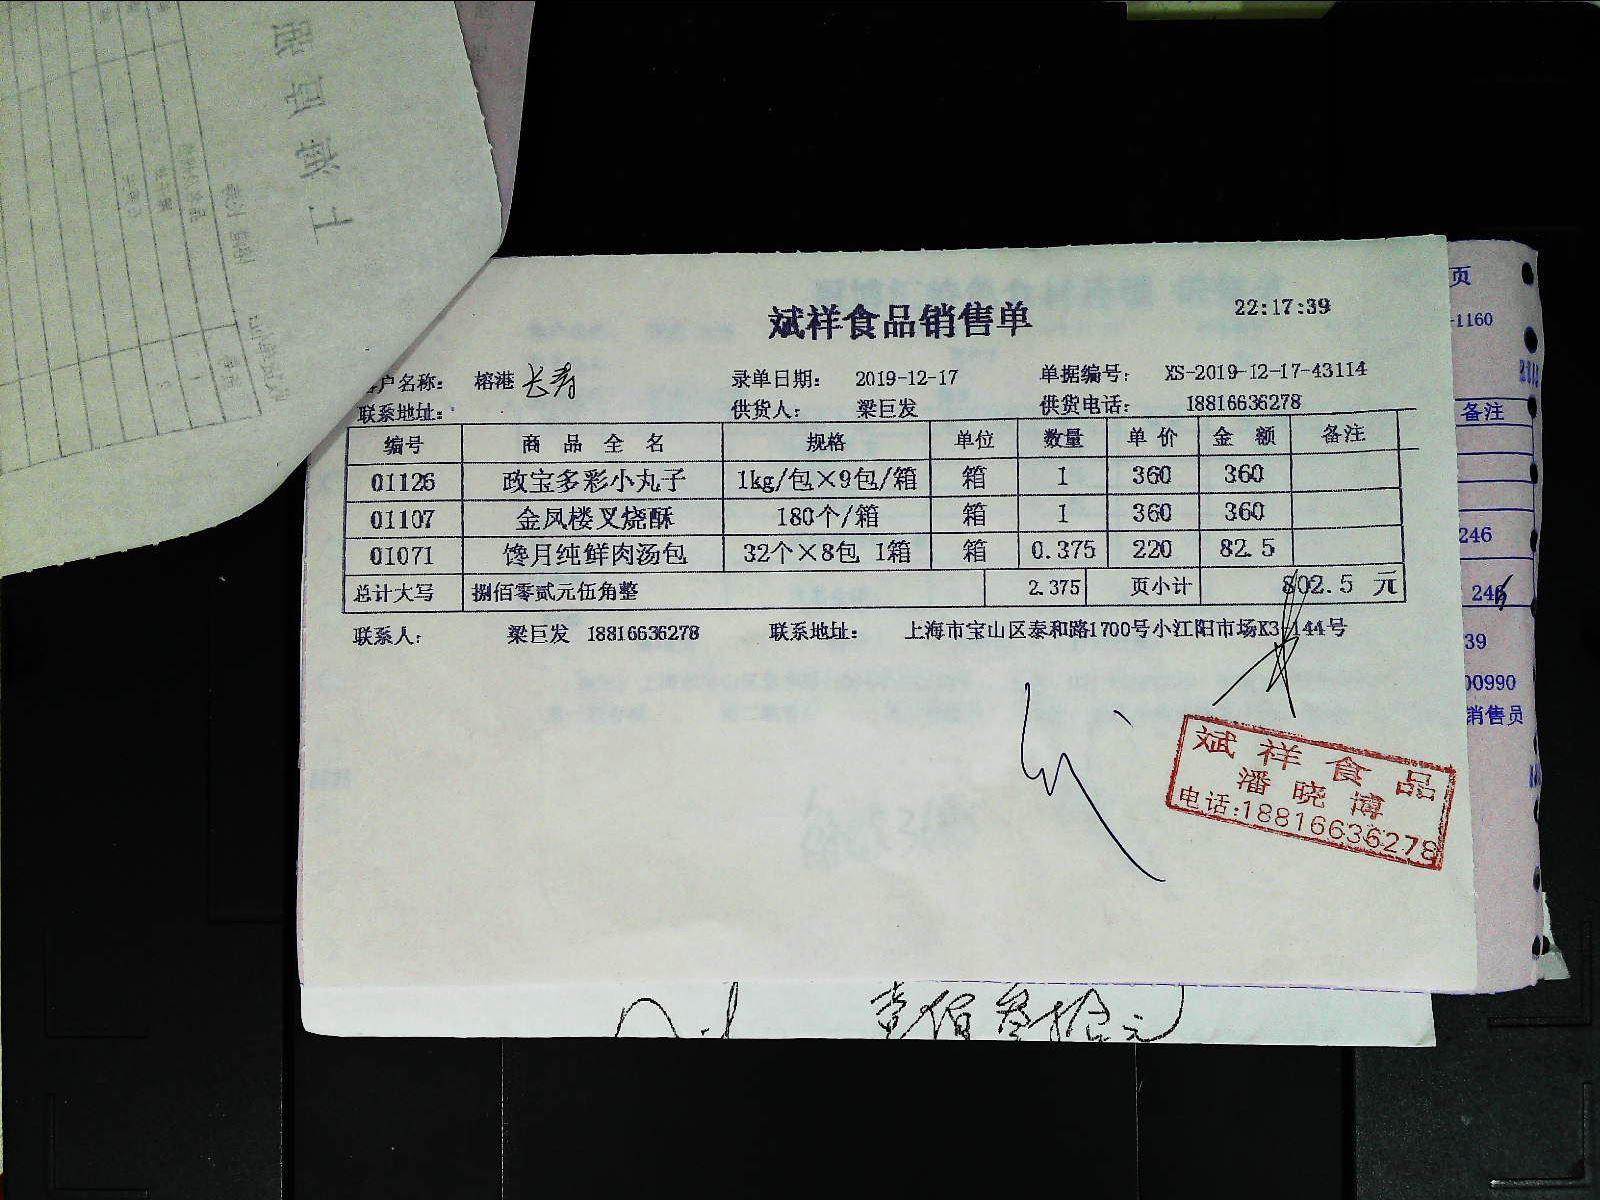 斌祥食品销售单 22:17:39
户名称: 榕港 长寿 录单日期: 2019-12-17 单据编号: XS-2019-12-17-43114
联系地址: 供货人: 梁巨发 供货电话: 18816636278
编号 商品全名 规格 单位 数量 单价 金额 备注
01126 政宝多彩小丸子 1kg/包×9包/箱 箱 1 360 360
01107 金凤楼叉烧酥 180个/箱 箱 1 360 360
01071 馋月纯鲜肉汤包 32个×8包 1箱 箱 0.375 220 82.5
总计大写 捌佰零贰元伍角整 2.375 页小计 802.5 元
联系人: 梁巨发 18816636278 联系地址: 上海市宝山区泰和路1700号小江阳市场K3-144号
斌祥食品
潘晓博
电话:18816636278
页
-1160
备注
246
246
39
00990
销售员
壹佰叁拾元
上海